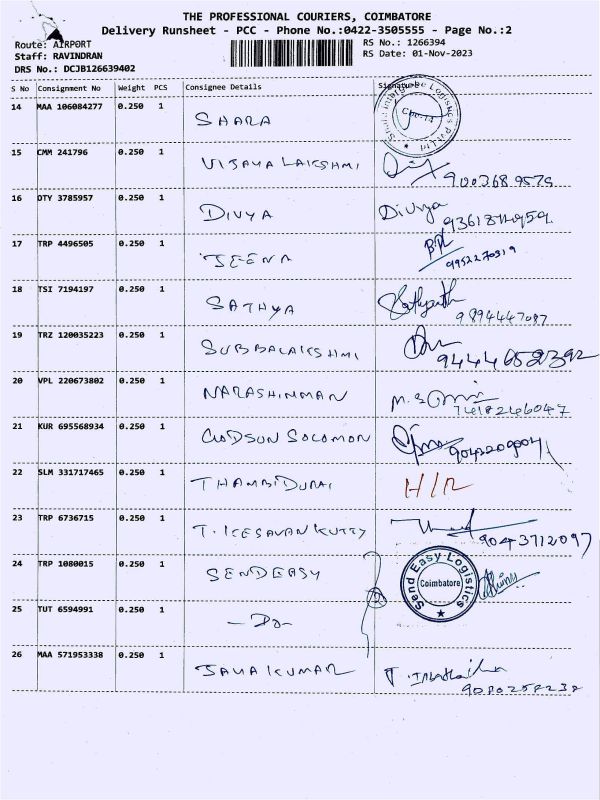 THE PROFESSIONAL COURIERS, COIMBATORE
Delivery Runsheet - PCC - Phone No.:0422-3505555 - Page No.:2
Route: AIRPORT
RS No.: 1266394
Staff: RAVINDRAN
RS Date: 01-Nov-2023
DRS No.: DCJB126639402
S No Consignment No Weight PCS Consignee Details Signature
14 MAA 106084277 0.250 1 SHARA
15 CMM 241796 0.250 1 VIJAYA LAKSHMI
16 OTY 3785957 0.250 1 DIVYA Divya
17 TRP 4496505 0.250 1 JEENA 9952270319
18 TSI 7194197 0.250 1 SATHYA 9894447087
19 TRZ 120035223 0.250 1 SUBBALAKSHMI 9444652392
20 VPL 220673802 0.250 1 NARASHINMAN
21 KUR 695568934 0.250 1 GODSON SOLOMON
22 SLM 331717465 0.250 1 THAMBIDURAI H/R
23 TRP 6736715 0.250 1 T. KESAVAN KUTTY 9043712097
24 TRP 1080015 0.250 1 SENDEASY Send Easy Logistics Coimbatore
25 TUT 6594991 0.250 1 -Do-
26 MAA 571953338 0.250 1 JAYAKUMAR